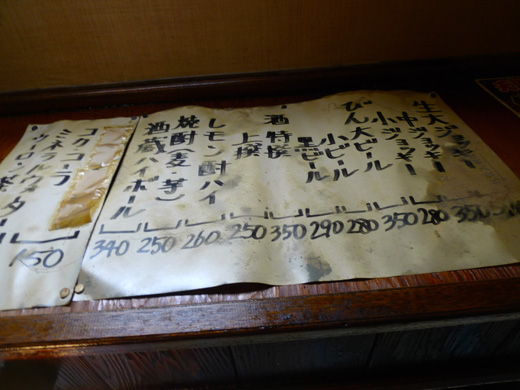 生大ジョッキー
中ジョッキー 350
小ジョッキー 280
びん大ビール 350
小ビール 280
黒ビール 290
酒特撰 350
上撰 250
レモン酎ハイ 260
焼酎(麦・芋) 250
酒蔵ハイボール 340
コカコーラ
ミネラルウォーター
ウーロン茶
150